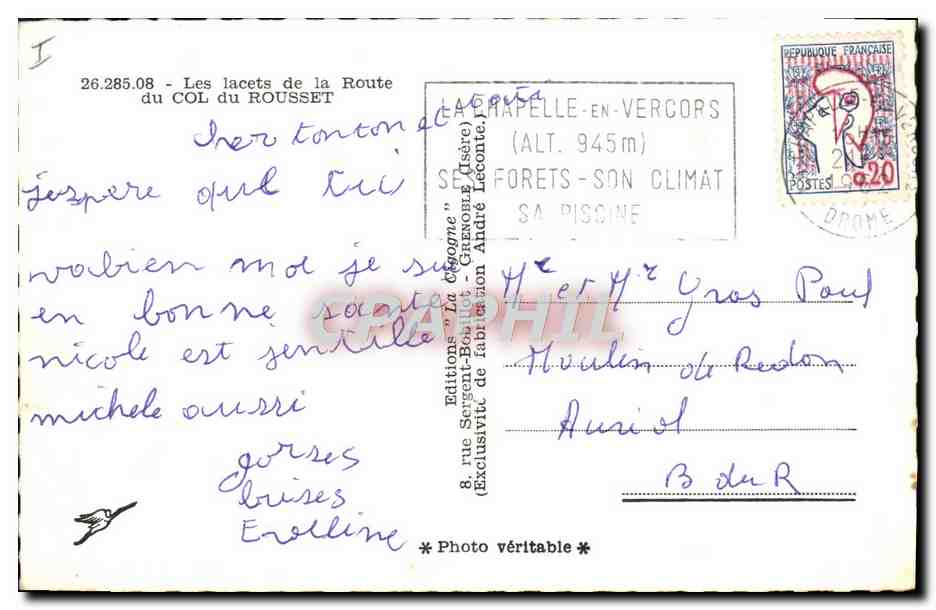 I
26.285.08 - Les lacets de la Route
du COL du ROUSSET
cher tonton et tata
j'espere que tui
vabien moi je sui
en bonne sante
nicole est jentille
michele aussi
gorses
buises
Evelline
LA CHAPELLE-EN-VERCORS
(ALT. 945m)
SES FORETS-SON CLIMAT
SA PISCINE
REPUBLIQUE FRANÇAISE
POSTES
0,20
DROME
Editions "La Cigogne"
8, rue Sergent-Bobillot - GRENOBLE (Isère)
(Exclusivité de fabrication André Leconte.)
CPAPHIL
Mr et Mr Gros Paul
Moulin de Redon
Auriol
B du R
* Photo véritable *